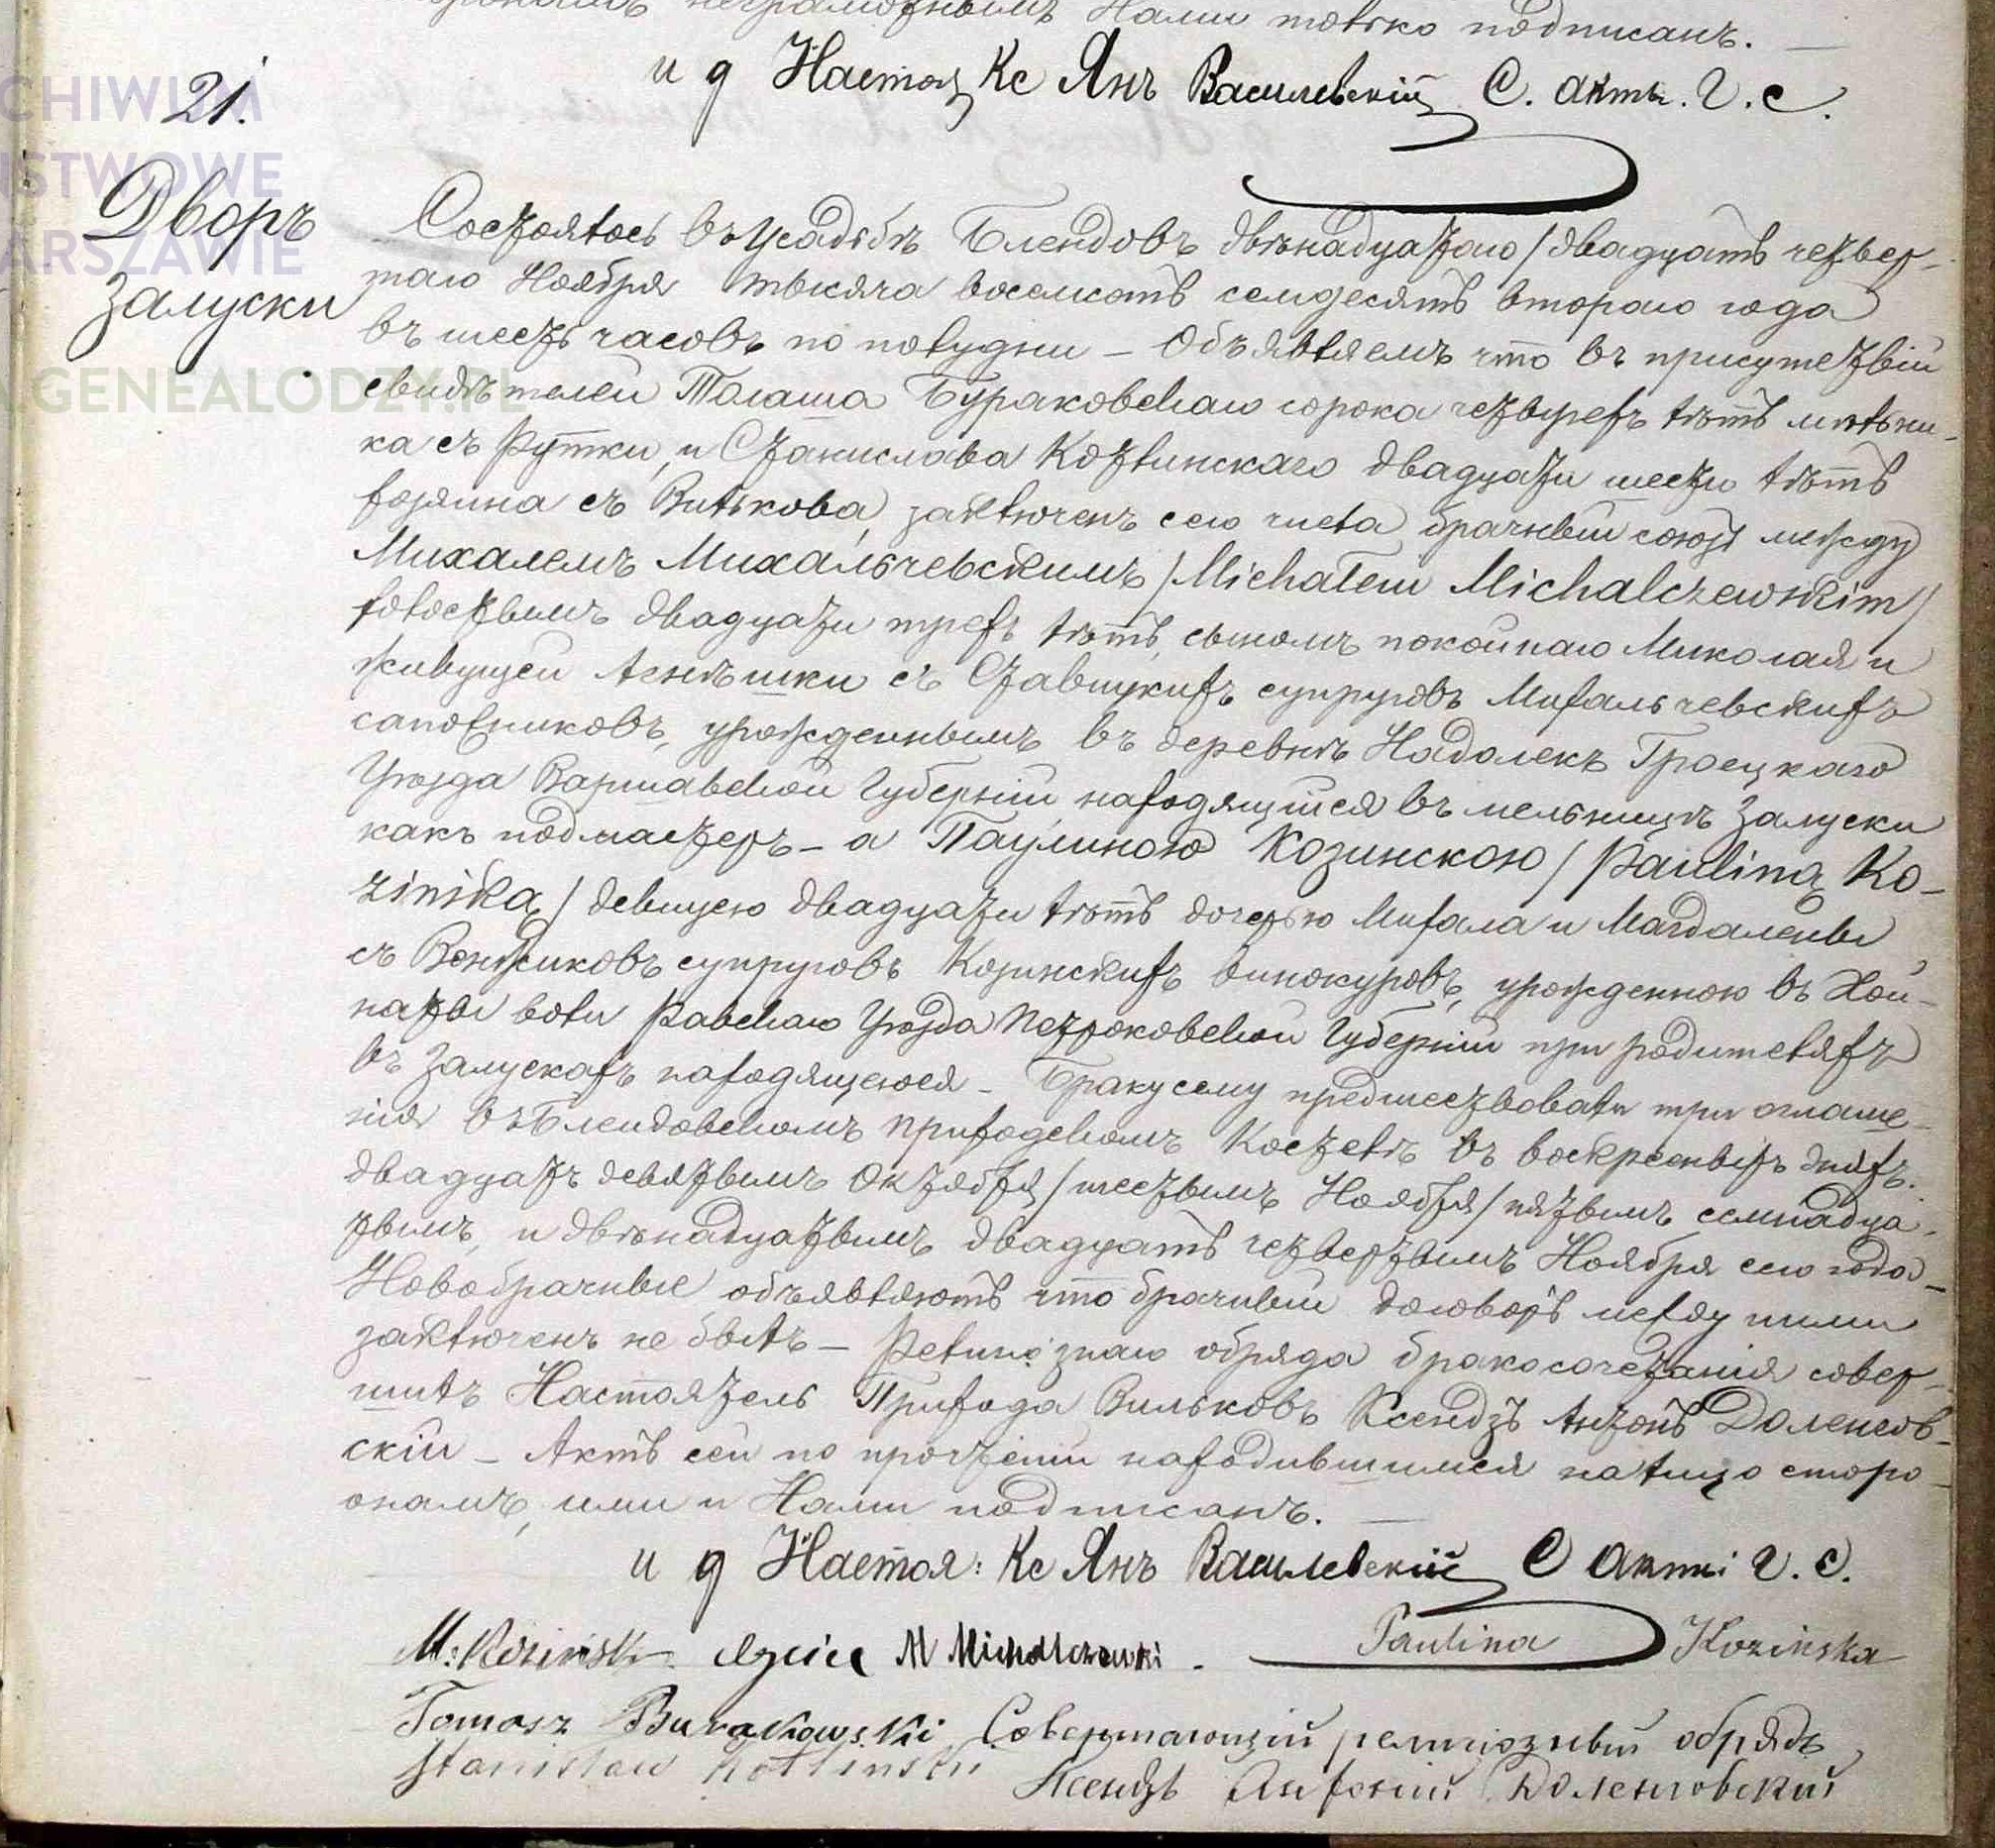 неграмотнымъ Нами только подписанъ. —
и д Настоя Кс Янъ Василевскій С. акты. Г. С.
21.
Дворъ
Залуски
Состоялось въ Усадьбѣ Блендовъ двѣнадцатаго / двадцать четвер-
таго Ноября тысяча восемсотъ семдесятъ втораго года
въ шесть часовъ по полудни — Объявляемъ что въ присутствіи
свидѣтелей Томаша Бураковскаго сорока четырехъ лѣтъ мѣльни-
ка съ Рутки, и Станислава Котлинскаго двадцати шести лѣтъ
хозяина съ Вилькова, заключенъ сего числа брачный союзъ между
Михалемъ Михальчевскимъ / Michałem Michalczewskim /
холостымъ двадцати трехъ лѣтъ, сыномъ покойнаго Миколая и
живущей Агнѣшки съ Ставицкихъ супруговъ Михальчевскихъ
сапожниковъ, урожденнымъ въ деревнѣ Надолекъ Гроецкаго
Уѣзда Варшавской Губерніи находящійся въ мельницѣ Залуски
какъ подмастеръ — а Паулиною Козинскою / Pauliną Ko-
zińską / девицею двадцати лѣтъ дочерью Михала и Магдалены
съ супруговъ Козинскихъ винокуровъ, урожденною въ Хой-
наты воли Равскаго Уѣзда Петроковской Губерніи при родителяхъ
въ Залускахъ находящеюся — Браку сему предшествовали три оглаше-
нія въ Блендовскомъ приходскомъ Костелѣ въ воскресныхъ дняхъ.
двадцать девятымъ Октября / шестымъ Ноября / пятымъ семнадца-
тымъ, и двѣнадцатымъ двадцать четвертымъ Ноября сего года —
Новобрачные объявляютъ что брачный договоръ между ними
заключенъ не былъ — Религіознаго обряда бракосочетанія совер-
шилъ Настоятель Прихода Вильковъ Ксендзъ Антонъ Доленгов-
скій — Актъ сей по прочтеніи находившимся на лицо сторо-
онамъ, ими и Нами подписанъ. —
и д Настоя: Кс Янъ Василевскій С акты Г. С.
M: Kozinski Ojciec M Michalczewski - Paulina Kozinska
Tomasz Burakowski Совершающій религіозный обрядъ
Stanisław Kotlinski Ксендзъ Антоній Доленговскій
ARCHIWUM
PAŃSTWOWE
WARSZAWIE
.GENEALODZY.PL